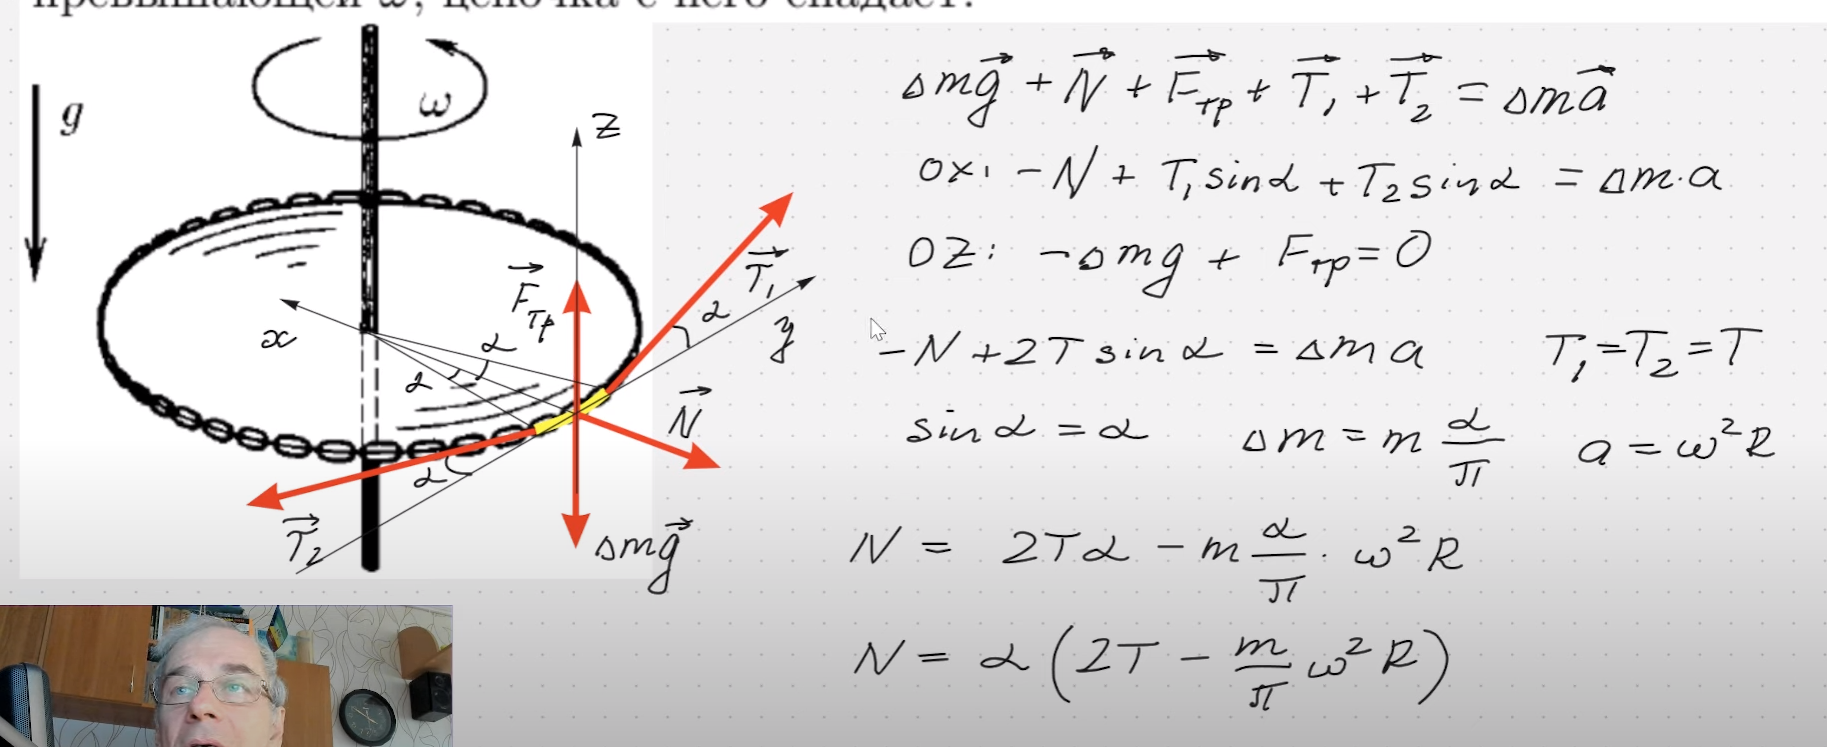 превышающей ω, цепочка с него спадает.
g
ω
z
F⃗тр
T⃗₁
α
y
x
α
α
N⃗
α
T⃗₂
Δmg⃗
Δmg⃗ + N⃗ + F⃗тр + T⃗₁ + T⃗₂ = Δma⃗
ox: -N + T₁sinα + T₂sinα = Δm·a
OZ: -Δmg + Fтр = 0
-N + 2T sinα = Δma   T₁ = T₂ = T
sinα = α   Δm = m α/π   a = ω²R
N = 2Tα - m α/π · ω²R
N = α (2T - m/π ω²R)